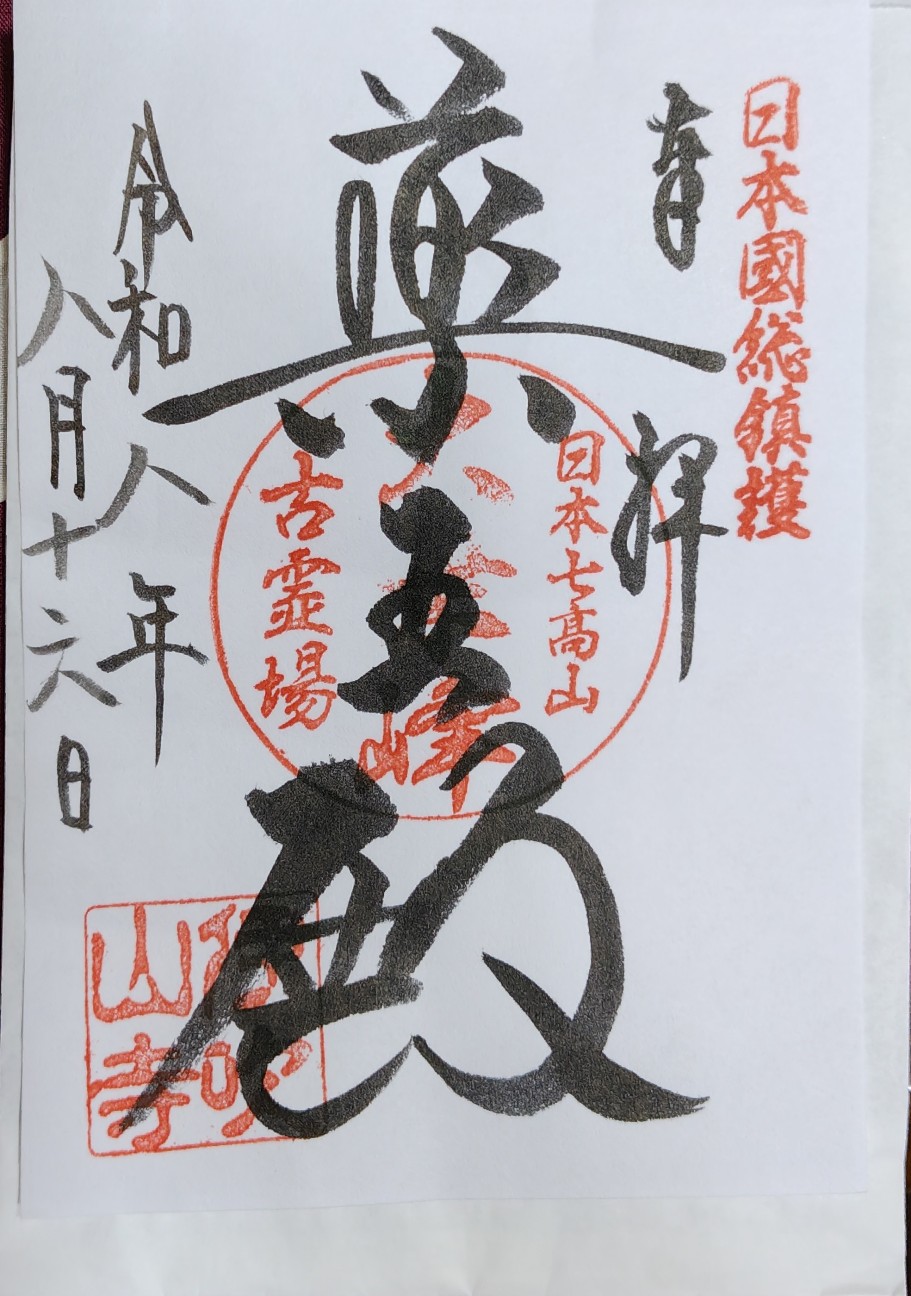 日本國総鎮護
奉拝
日本七高山
薬 殿
峰
古霊場
令和八年
八月十六日
伊吹山寺